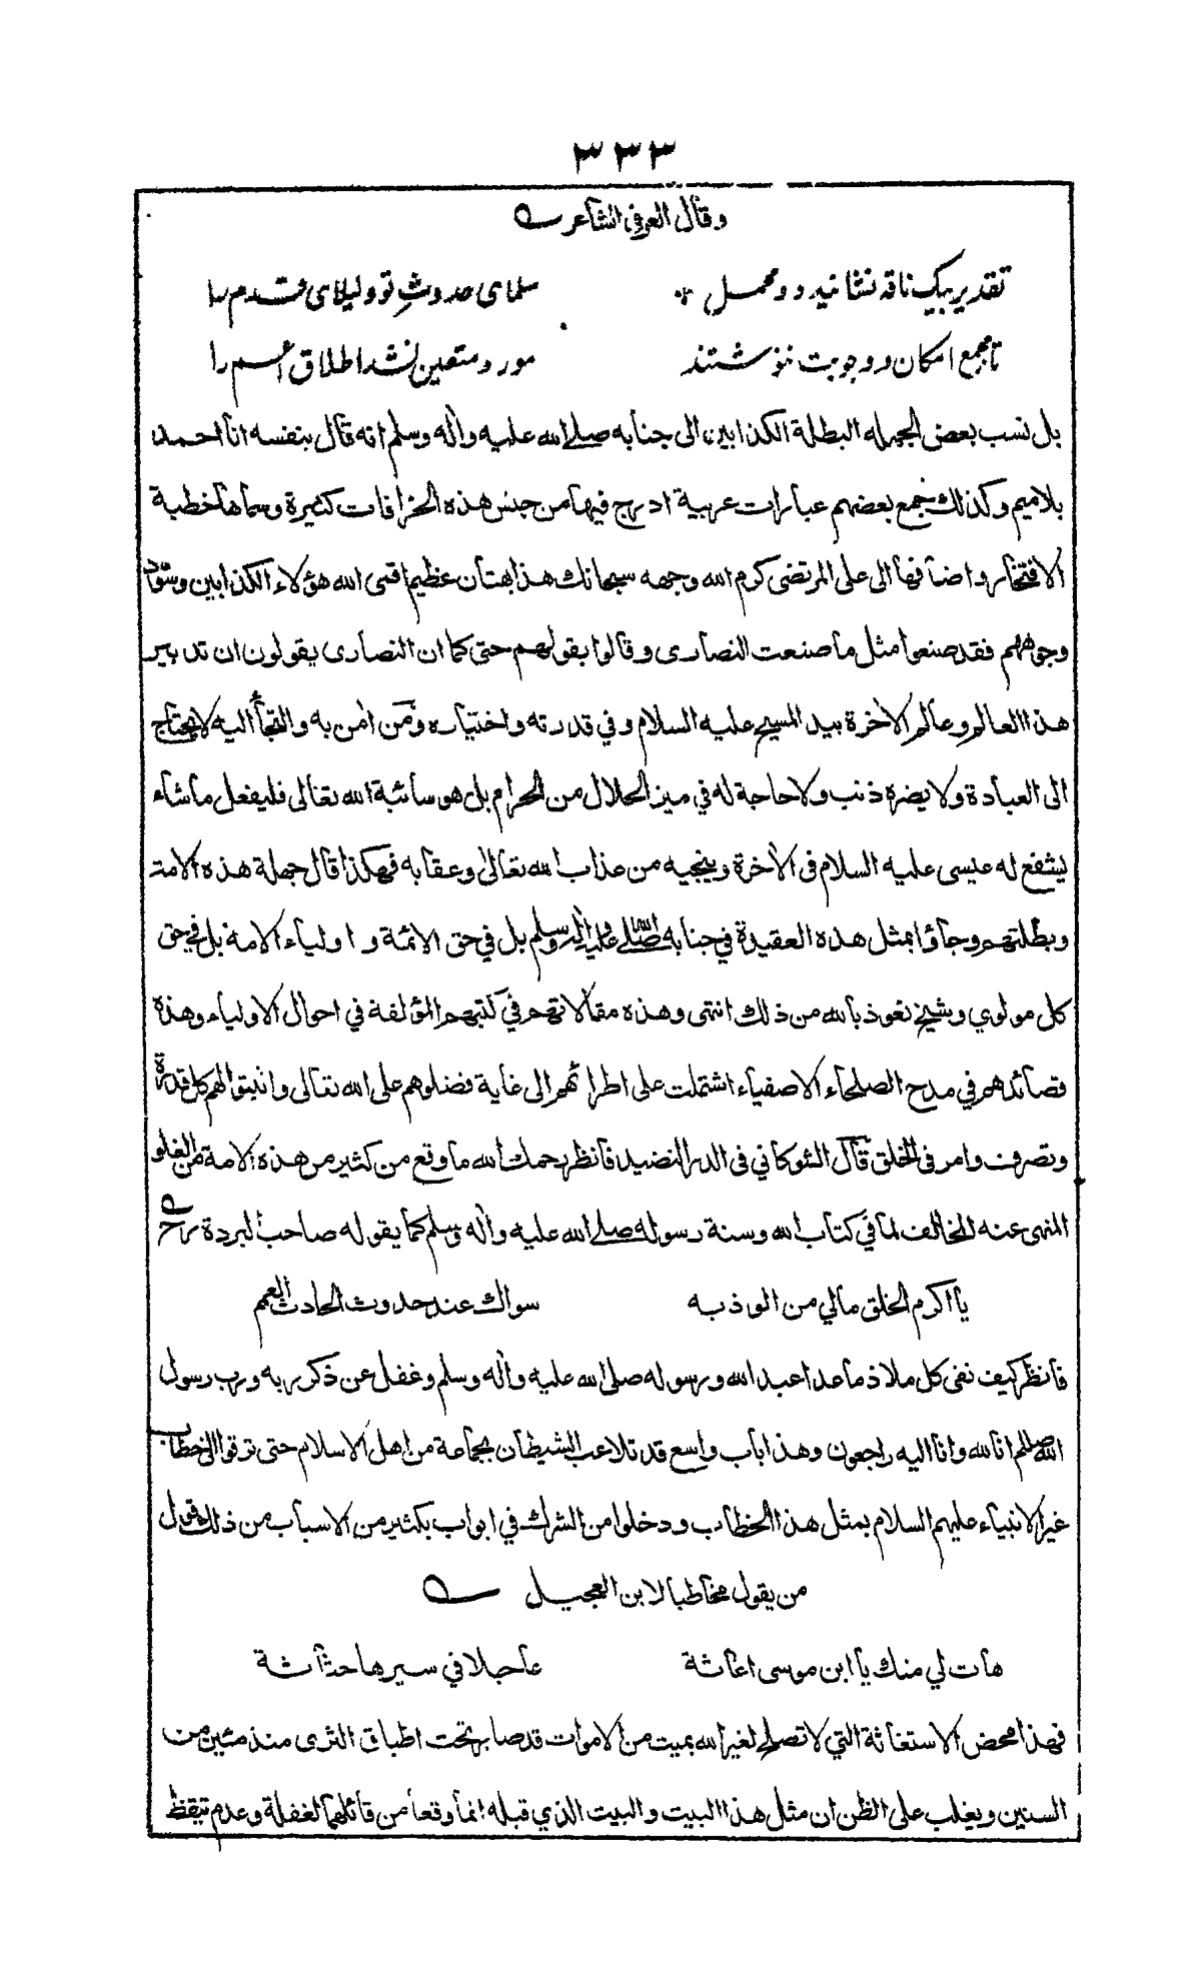 ٣٣٣
وقال العرفى الشاعر
تقدير بيك ناقه نشانيد دو محمل سلماى حدوثِ تو وليلاى قدم را
تا مجمع امكان ووجوبت ننوشتند مورد متعين نشد اطلاق اعم را
بل نسب بعض الجهله البطلة الكذابين الى جنابه صلے الله عليه وأله وسلم انه قال بنفسه انا احمد
بلاميم وكذلك جمع بعضهم عبارات عربية ادرج فيها من جنس هذه الخرافات كثيرة وسماها خطبة
الافتخار واضافها الى على المرتضى كرم الله وجهه سبحانك هذا بهتان عظيم اقمى الله هؤلاء الكذابين وسَوّد
وجوههم فقد صنعوا مثل ما صنعت النصارى وقالوا بقولهم حتى كما ان النصارى يقولون ان تدبير
هذا العالم وعالم الاخرة بيد المسيح عليه السلام وفي قدرته واختياره ومن أمن به والتجأ اليه لا يحتاج
الى العبادة ولا يضره ذنب ولا حاجة له في ميز الحلال من الحرام بل هو سائبة الله تعالى فليفعل ما شاء
ليشفع له عيسى عليه السلام فى الأخرة وينجيه من عذاب الله تعالىٰ وعقابه فهكذا قال جهلة هذه الامة
وبطلتهم وجاؤا بمثل هذه العقيدة في جنابه صلے الله عليه وأله وسلم بل في حق الائمة واولياء الامة بل في حق
كل مولوي وشيخ نعوذ بالله من ذلك انتهى وهذه مقالاتهم في كتبهم المؤلفة في احوال الاولياء وهذه
قصائدهم في مدح الصلحاء الاصفياء اشتملت على اطرائهم الى غاية فضلوهم على الله تعالى واثبتوا لهم كل قدرة
وتصرف وامر فى الخلق قال الشوكاني فى الدر النضيد فانظر رحمك الله ما وقع من كثير من هذه الامة من الغلو
المنهى عنه المخالف لما في كتاب الله وسنة رسوله صلے الله عليه وأله وسلم كما يقوله صاحب البردة رح
يا اكرم الخلق مالي من الوذ به سواك عند حدوث الحادث العمم
فانظر كيف نفى كل ملاذ ما عدا عبد الله ورسوله صلى الله عليه وأله وسلم وغفل عن ذكر ربه ورب رسول
الله صللم انا لله وانا اليه راجعون وهذا باب واسع قد تلاعب الشيطان بجماعة من اهل الاسلام حتى ترقوا الى خطاب
غير الانبياء عليهم السلام بمثل هذا الخطاب ودخلوا من الشرك في ابواب بكثير من الاسباب من ذلك قول
من يقول مخاطبا لابن العجيل
هات لي منك يا ابن موسى اغاثة عاجلا في سيرها حثاثة
فهذا محض الاستغاثة التي لا تصلح لغير الله بميت من الاموات قد صار تحت اطباق الثرى منذ مئين من
السنين ويغلب على الظن ان مثل هذا البيت والبيت الذي قبله انما وقعا من قائلهما لغفلة وعدم تيقظ